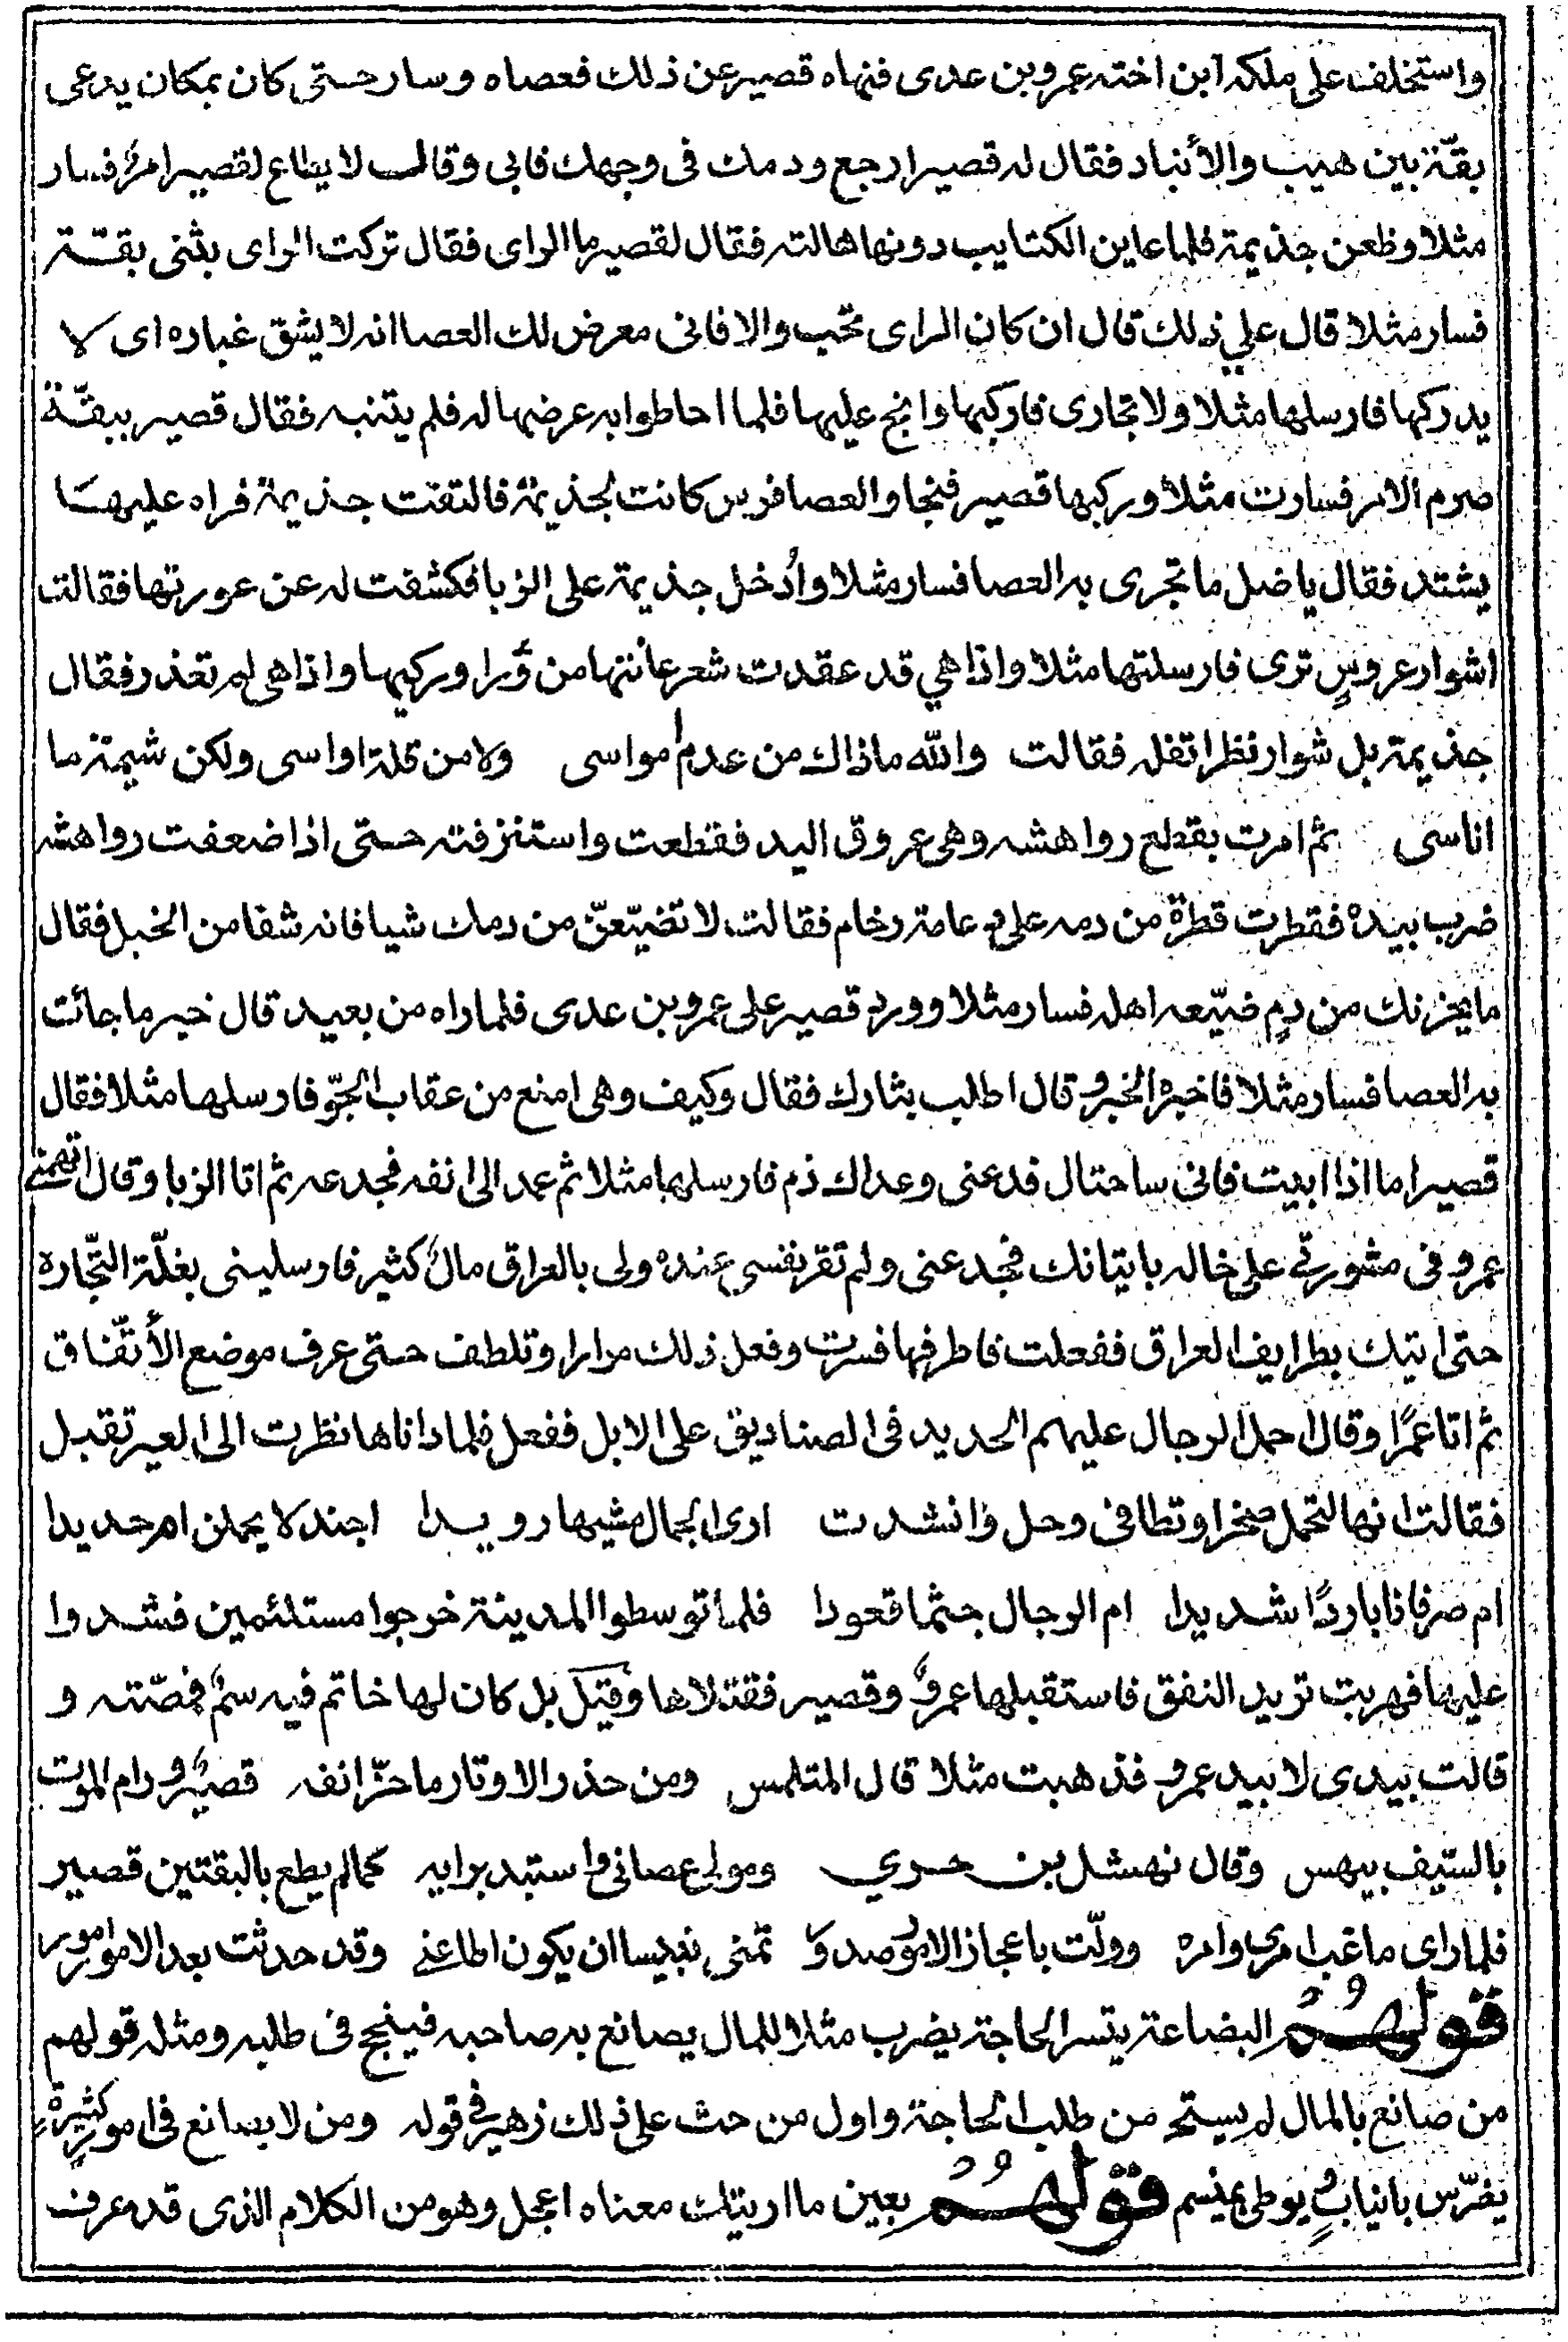 واستخلف على ملكه ابن اخته عمرو بن عدى فنهاه قصير عن ذلك فعصاه وسار حتى كان بمكان يدعى
بقّة بين هيب والأنباد فقال له قصير ارجع ودمك فى وجهك فابى وقال لا يطاع لقصير امرٌ فسار
مثلا وظعن جذيمة فلما عاين الكتايب دونها هالته فقال لقصير ما الراى فقال تركت الراى بثنى بقّة
فسار مثلا قال علي ذلك قال ان كان الراى تحب والا فانى معرض لك العصا انه لا يشق غباره اى لا
يدركها فارسلها مثلا ولا تجارى فاركبها وانج عليها فلما احاطوا به عرضها له فلم يتنبه فقال قصير ببقّة
صرم الامر فسارت مثلا وركبها قصير فنجا والعصا فرس كانت لجذيمة فالتفت جذيمة فراه عليها
يشتد فقال يا ضل ما تجرى به العصا فسار مثلا وأُدخل جذيمة على الزبا فكشفت له عن عورتها فقالت
اشوار عروسٍ ترى فارسلتها مثلا واذا هي قد عقدت شعر عانتها من وَّرا وركيها واذا هى لم تعذر فقال
جذيمة بل شوار نظرا تفله فقالت والله ماذاك من عدم امواسى ولا من قلة اواسى ولكن شيمة ما
اناسى ثم امرت بقطع رواهشه وهى عروق اليد فقطعت واستنزفته حتى اذا ضعفت رواهشه
ضرب بيده فقطرت قطرة من دمه على عامة رخام فقالت لا تضيّعنّ من دمك شيا فانه شفا من الخبل فقال
ما يحزنك من دمٍ ضيّعه اهله فسار مثلا وورد قصير على عمرو بن عدى فلما راه من بعيد قال خير ما جائت
به العصا فسار مثلا فاخبره الخبر وقال اطلب بثارك فقال وكيف وهى امنع من عقاب الجوّ فارسلها مثلا فقال
قصير اما اذا ابيت فانى ساحتال فدعنى وعداك ذم فارسلها مثلا ثم عمد الى انفه فجدعه ثم اتا الزبا وقال اتهمنى
عمرو فى مشورتي على خاله باتيانك فجدعنى ولم تقر نفسى عنده ولى بالعراق مالٌ كثير فارسلينى بغلّة التّجاره
حتى اتيك بطرايف العراق ففعلت فاطرفها فسرت وفعل ذلك مرارا وتلطف حتى عرف موضع الأتّفاق
ثم اتا عمرًا وقال احمل الرجال عليهم الحديد فى الصناديق على الابل ففعل فلما داناها نظرت الى العير تقبل
فقالت انها لتحمل صخرا وتطا فى وحل وانشدت ارى الجمال مشيها رويدا اجندلا يحملن ام حديدا
ام صرفانا باردًا شديدا ام الرجال جثما قعودا فلما توسطوا المدينة خرجوا مستلئمين فشدوا
عليها فهربت تريد النفق فاستقبلها عمروٌ وقصير فقتلاها وقيل بل كان لها خاتم فيه سمٌ فمصّته و
قالت بيدى لا بيد عمرو فذهبت مثلا قال المتلمس ومن حذر الاوتار ما حزّ انفه قصيرٌ ورام الموت
بالسّيف بيهس وقال نهشل بن حري ومولى عصانى واستبد برايه كما لم يطع بالبقتين قصير
فلما راى ما غب امرى وامره وولّت باعجاز الامور صدو ر تمنى نئيسا ان يكون اطاعنى وقد حدثت بعد الامور امور
قولهُمْ البضاعة يتسر الحاجة يضرب مثلا للمال يصانع به صاحبه فينجح فى طلبه ومثله قولهم
من صانع بالمال لم يستح من طلب الحاجة واول من حث على ذلك زهير في قوله ومن لا يصانع فى امور كثيرةٍ
يضرّس بانيابٍ ويوطى بمنسم قولهُمْ بعين ما اريتك معناه اعجل وهو من الكلام الذى قد عرف